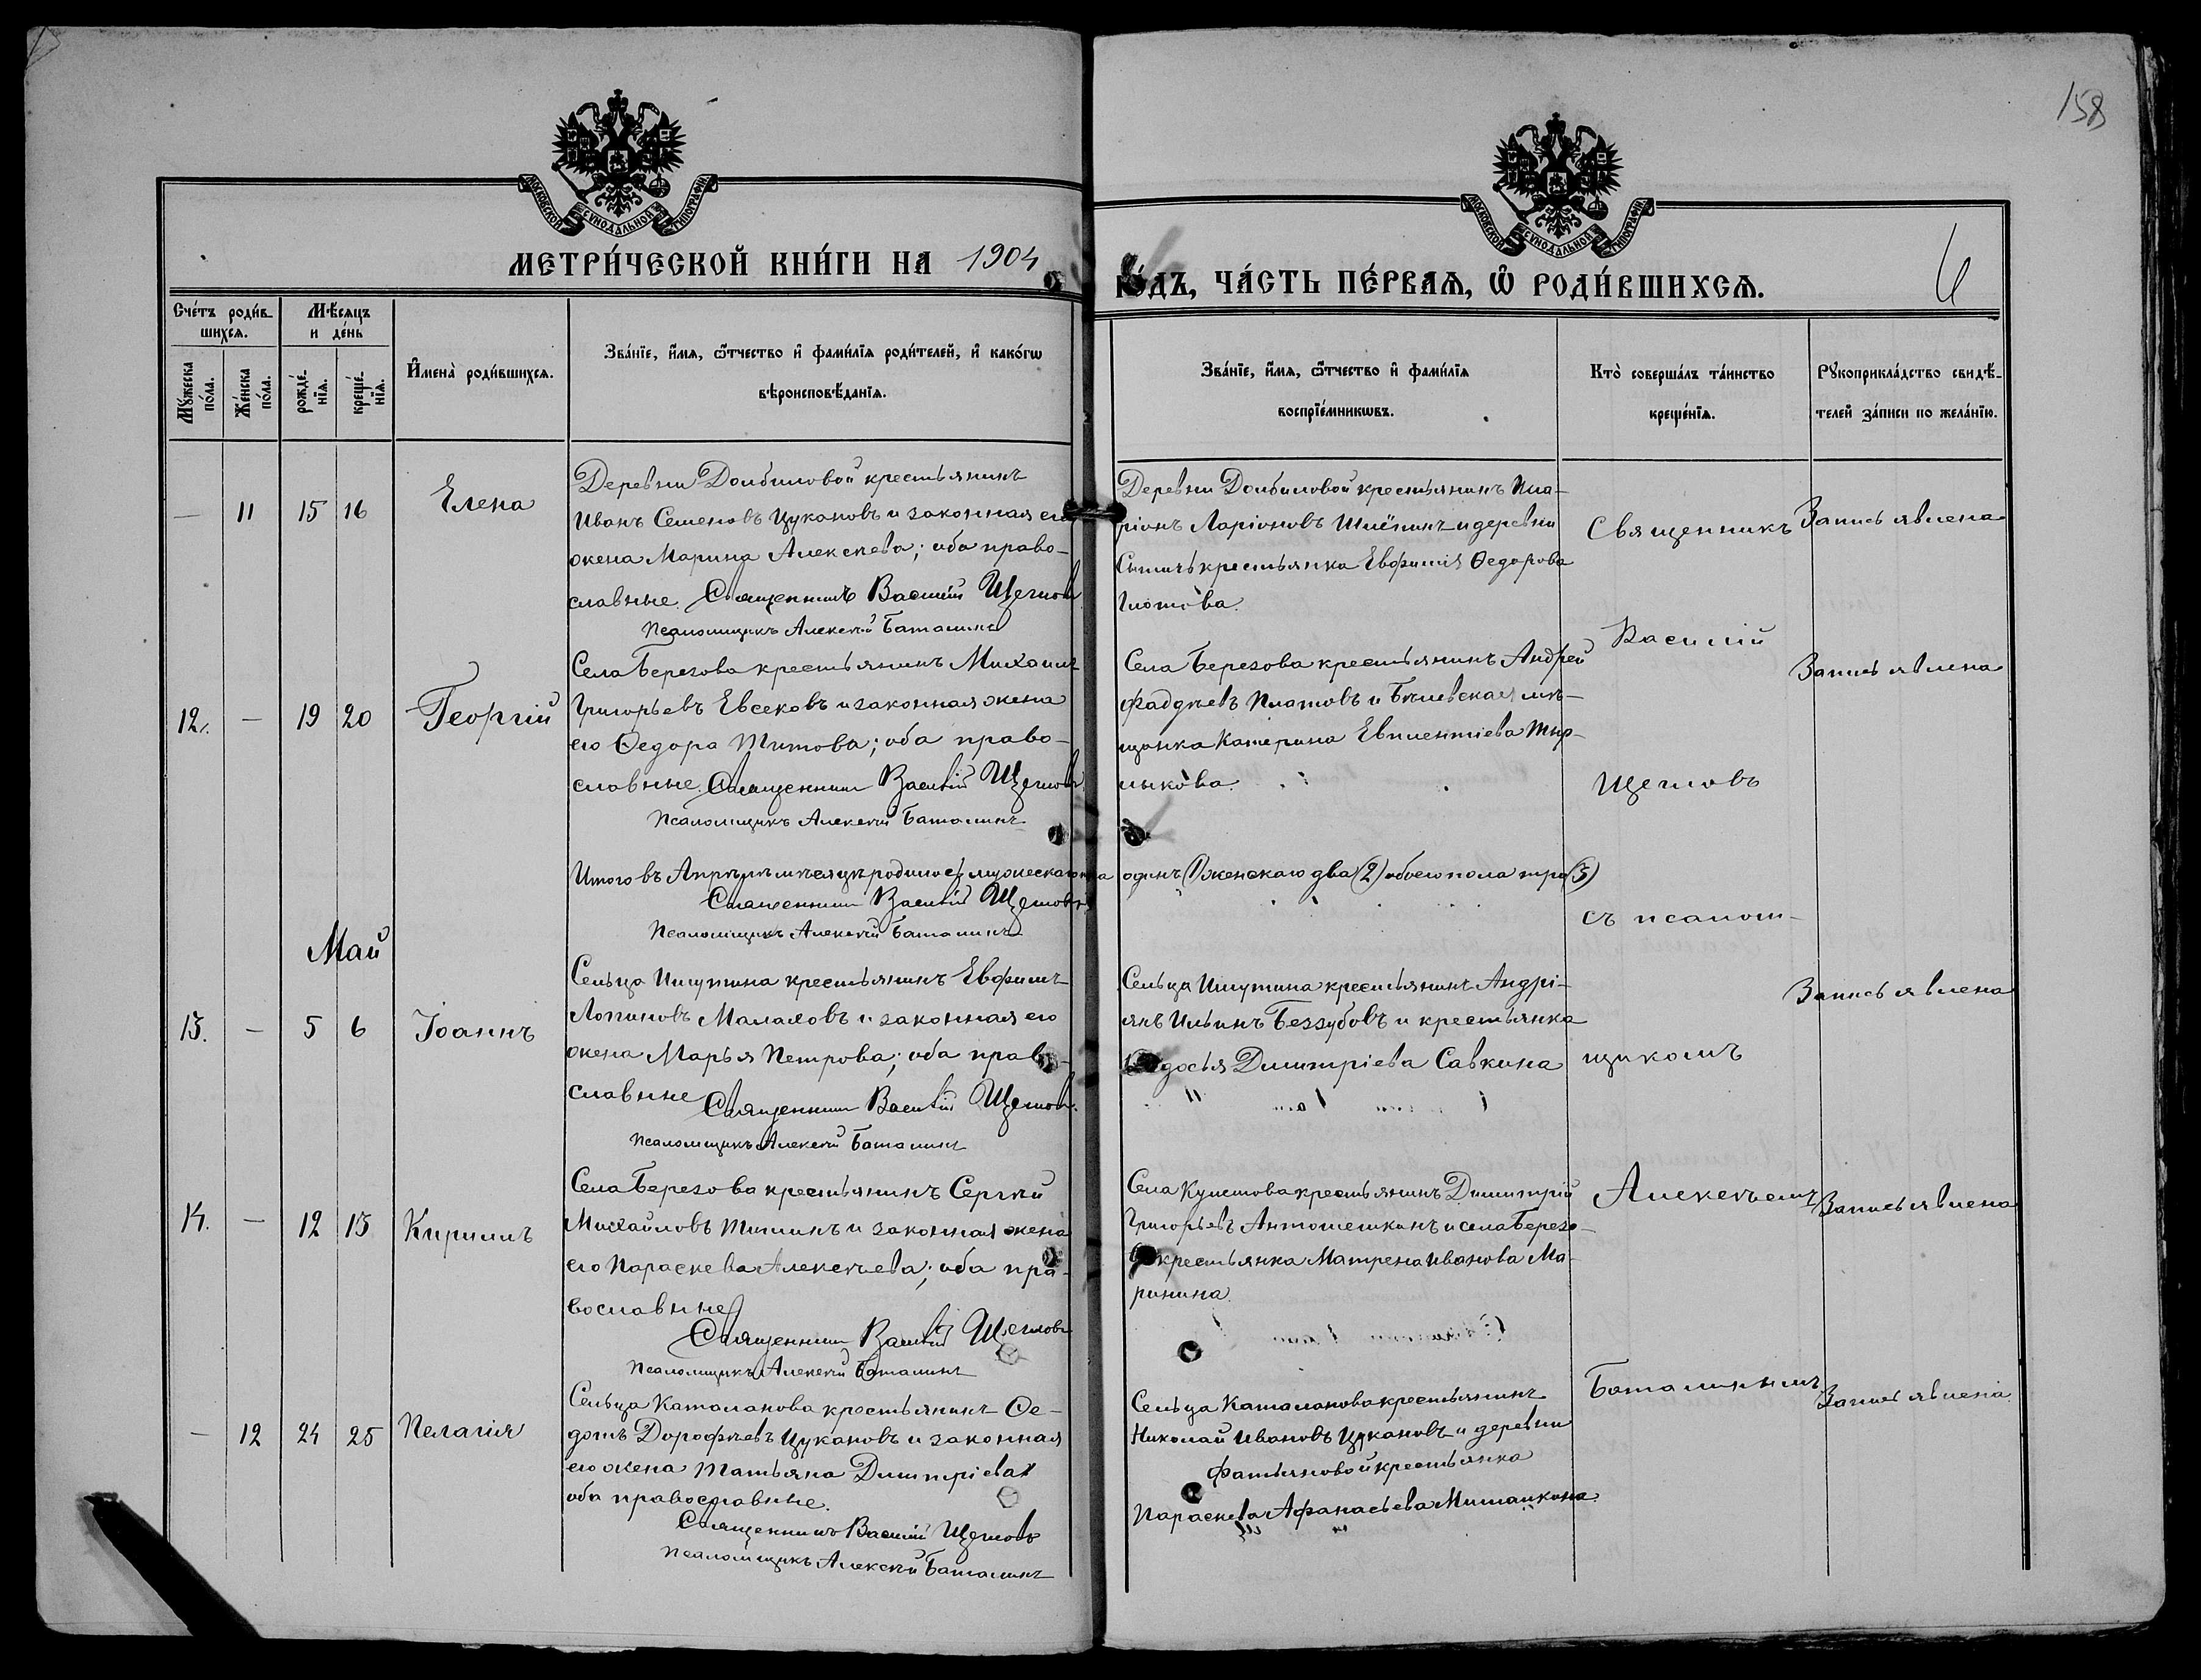 158
МОСКОВСКОЙ СѴНОДАЛЬНОЙ ТИПОГРАФІИ
МОСКОВСКОЙ СѴНОДАЛЬНОЙ ТИПОГРАФІИ
МЕТРИ́ЧЕСКОЙ КНИ́ГИ НА 1904
ГО́ДЪ, ЧА́СТЬ ПЕ́РВАѦ, Ѡ РОДИ́ВШИХСѦ.
6
Сче́тъ роди́в-
шихсѧ.
Мѣ́сяцъ
и де́нь
Мꙋ́жеска
по́ла.
Же́нска
по́ла.
рожде́-
нїѧ.
креще́-
нїѧ.
И҆мена̀ роди́вшихсѧ.
Зва́нїе, и҆́мѧ, ѻ҆́тчество и҆ фами́лїѧ роди́телей, и҆ како́гѡ
вѣроисповѣ́данїѧ.
Зва́нїе, и҆́мѧ, ѻ҆́тчество и҆ фами́лїѧ
воспрїе́мникѡвъ.
Кто̀ соверша́лъ та́инство
креще́нїѧ.
Рꙋкоприкла́дство свидѣ́-
телей за́писи по жела́нїю.
— 11 15 16 Елена
Деревни Долбиловой крестьянинъ
Иванъ Семеновъ Цукановъ и законная его
жена Марина Алексѣева; оба право-
славные. Священникъ Василій Щегловъ
Псаломщикъ Алексѣй Баталинъ
Деревни Долбиловой крестьянинъ Ила-
ріонъ Ларіоновъ Шлёнинъ и деревни
крестьянка Евфимія Ѳедорова
Глотова.
Священникъ
Запись явлена
12. — 19 20 Георгій
Села Березова крестьянинъ Михаилъ
Григорьевъ Евсековъ и законная жена
его Ѳедора Титова; оба право-
славные. Священникъ Василій Щегловъ
Псаломщикъ Алексѣй Баталинъ
Села Березова крестьянинъ Андрей
Фадѣевъ Платовъ и Бѣлевская мѣ-
щанка Катерина Евплентіева
лыкова.
Василій
Щегловъ
Запись явлена
Итого въ Апрѣлѣ мѣсяцѣ родилось мужескаго пола одинъ (1) женскаго два (2) обоего пола три (3)
Священникъ Василій Щегловъ
Псаломщикъ Алексѣй Баталинъ
съ псалом-
Май
13. — 5 6 Іоаннъ
Сельца Ишутина крестьянинъ Евфимъ
Логиновъ Малаховъ и законная его
жена Марья Петрова; оба право-
славные Священникъ Василій Щегловъ.
Псаломщикъ Алексѣй Баталинъ
Сельца Ишутина крестьянинъ Андрі-
янъ Ильинъ Беззубовъ и крестьянка
Ѳедосья Димитріева Савкина
щикомъ
Запись явлена
14. — 12 13 Кириллъ
Села Березова крестьянинъ Сергѣй
Михайловъ Тишинъ и законная жена
его Параскева Алексѣева; оба пра-
вославные
Священникъ Василій Щегловъ
Псаломщикъ Алексѣй Баталинъ
Села крестьянинъ Димитрій
Григорьевъ Антошешкинъ и села Березо-
ва крестьянка Матрена Иванова Ма-
ринина.
Алексѣемъ
Запись явлена
— 12 24 25 Пелагия
Сельца Каталанова крестьянинъ Ѳе-
дотъ Дорофѣевъ Цукановъ и законная
его жена Татьяна Димитріева
оба православные.
Священникъ Василій Щегловъ
Псаломщикъ Алексѣй Баталинъ
Сельца Каталанова крестьянинъ
Николай Ивановъ Цукановъ и деревни
Фатьяновой крестьянка
Параскева Афанасьева Мишайкина.
Баталинымъ
Запись явлена